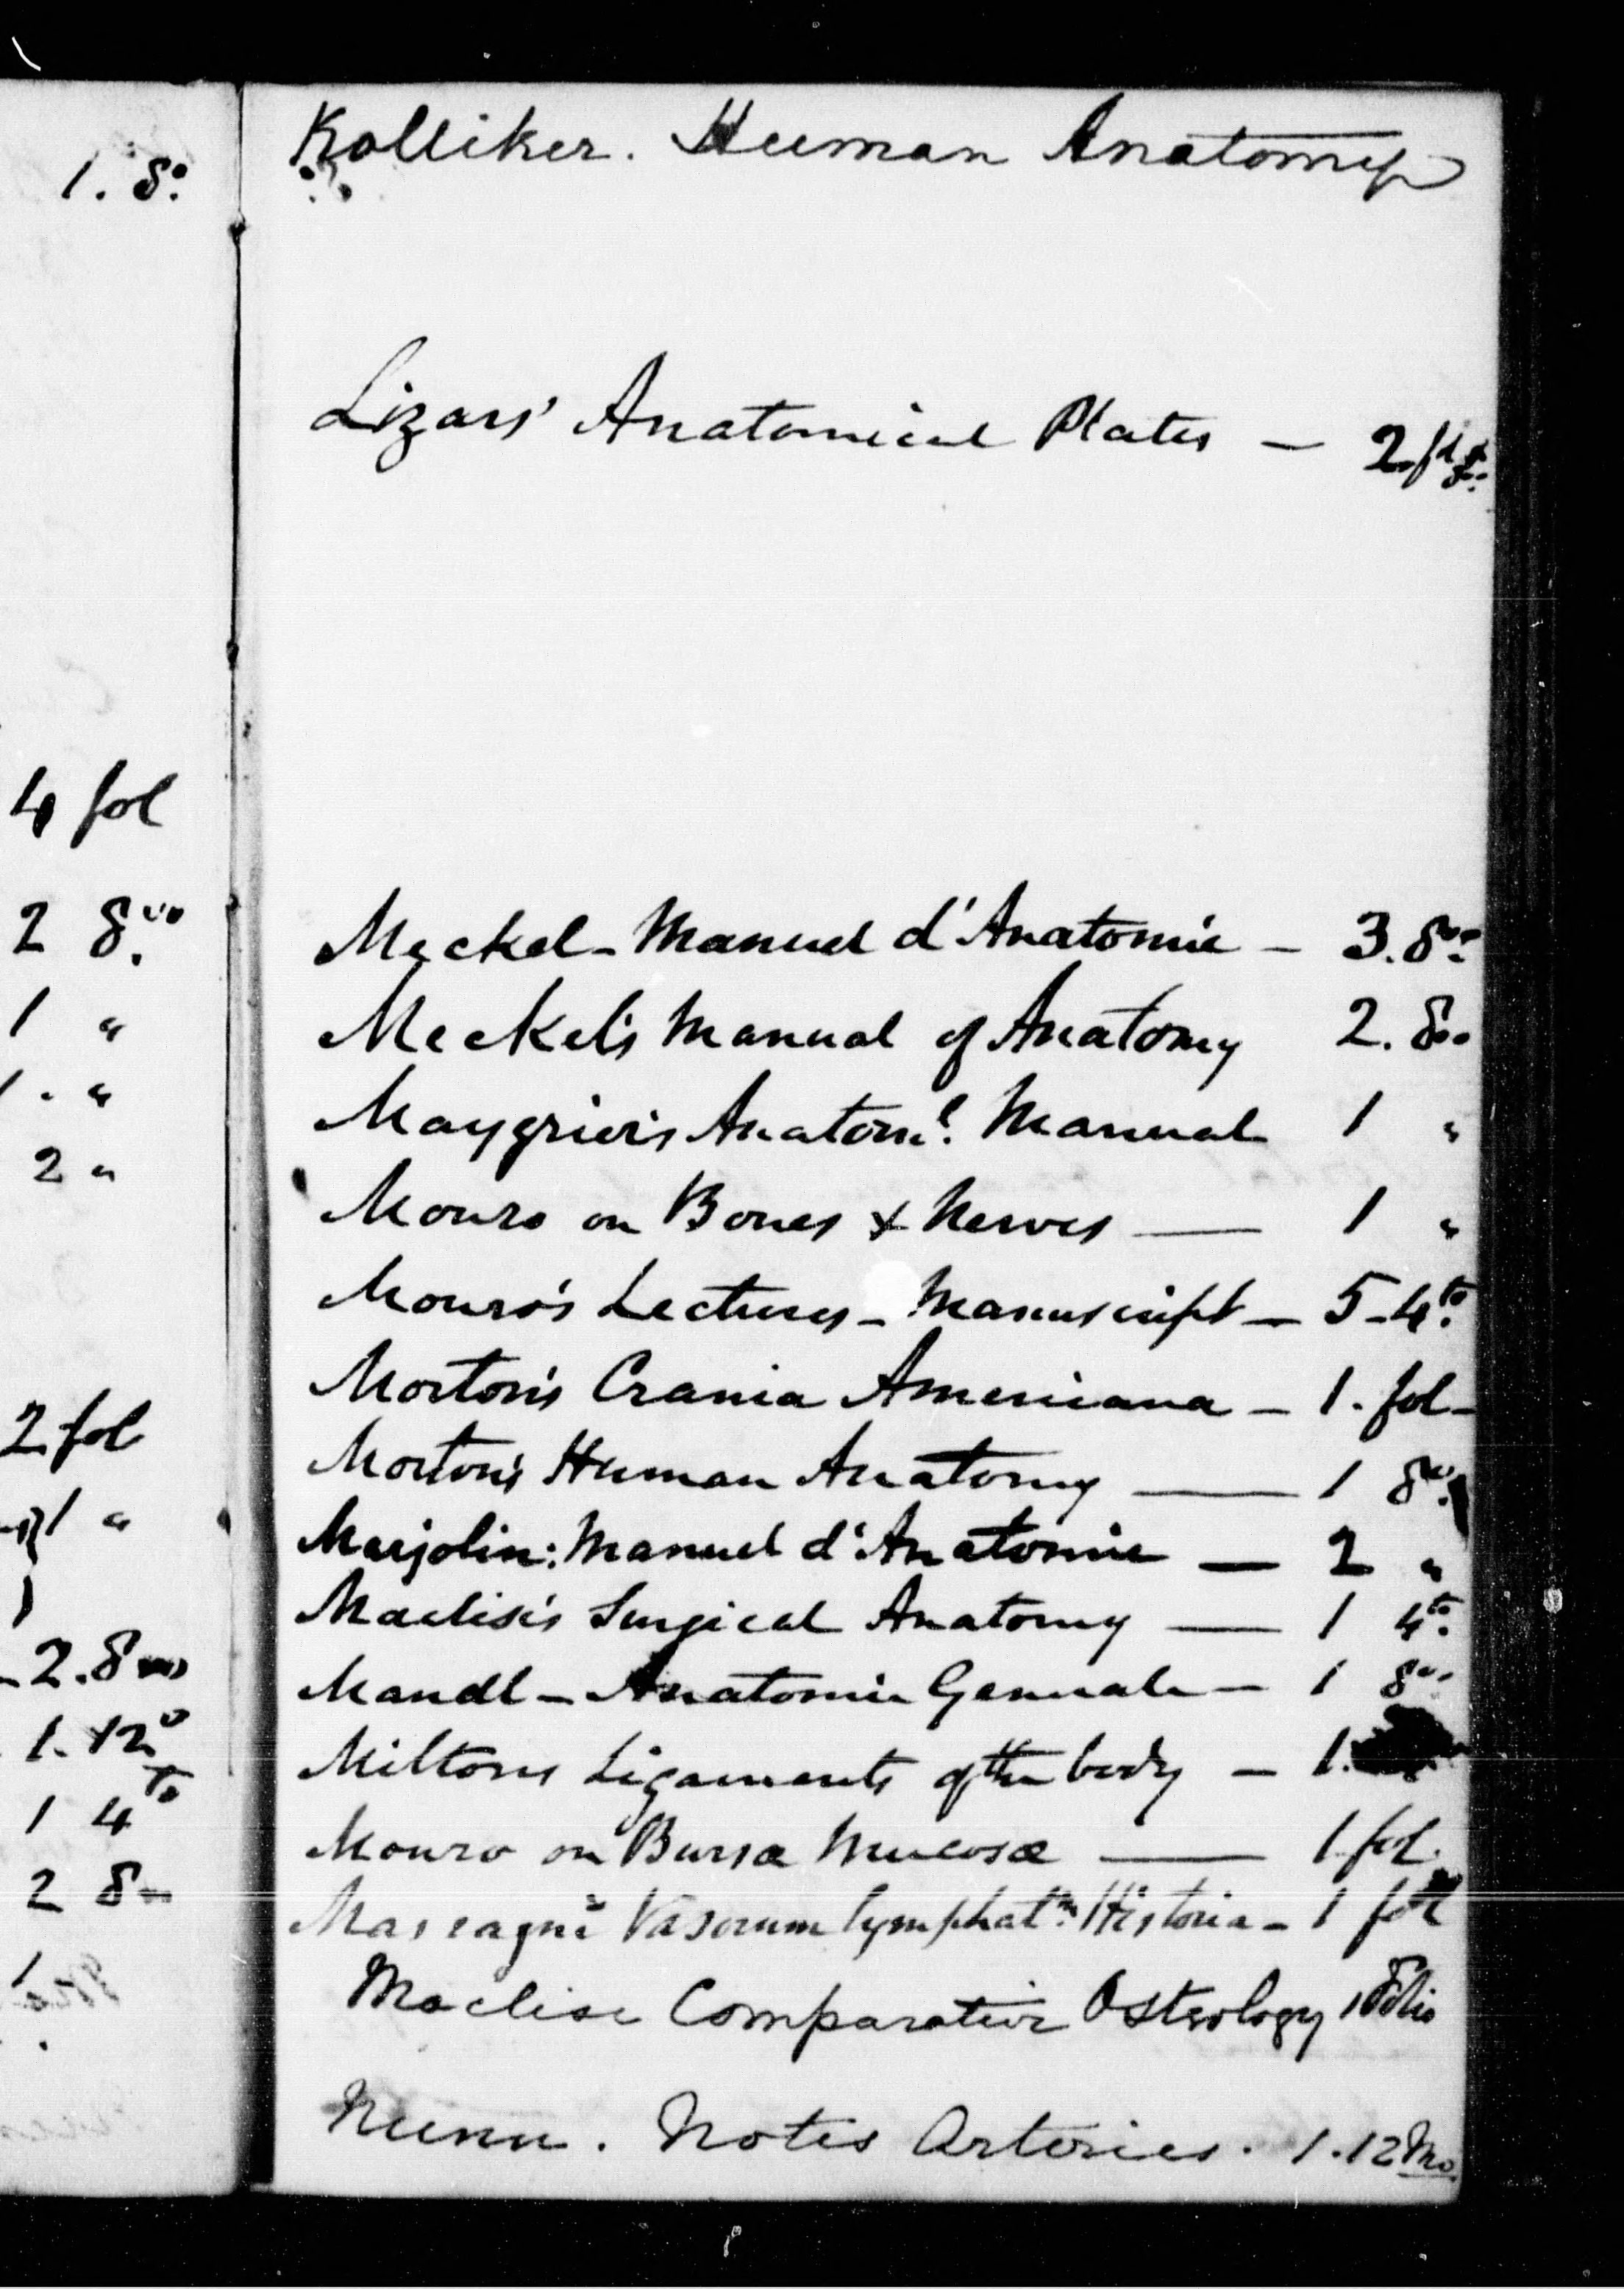 1. 8o
4 fol
2 8vo
1 "
1 . "
2 "
2 fol
1 "
1
2. 8vo
1. 12o
1 4to
2 8vo
1
Kolliker. Human Anatomy
Lizars' Anatomical Plates — 2. fol
Meckel - Manuel d'Anatomie — 3. 8vo
Meckel's Manual of Anatomy 2. 8vo
Maygrier's Anatoml. Manual 1 "
Monro on Bones & Nerves — 1 "
Monro's Lectures - Manuscript — 5 - 4to
Morton's Crania Americana — 1. fol -
Morton's Human Anatomy — 1 8vo
Marjolin: Manuel d'Anatomie — 2 "
Maclise's Surgical Anatomy — 1 4to
Mandl - Anatomie Generale — 1 8vo
Miltons Ligaments of the body — 1.
Monro on Bursa Mucosæ — 1 fol.
Mascagni Vasorum lymphatm. Historia - 1 fol
Maclise Comparative Osteology 1 Folio
Nunn. Notes Arteries. 1. 12 Mo.